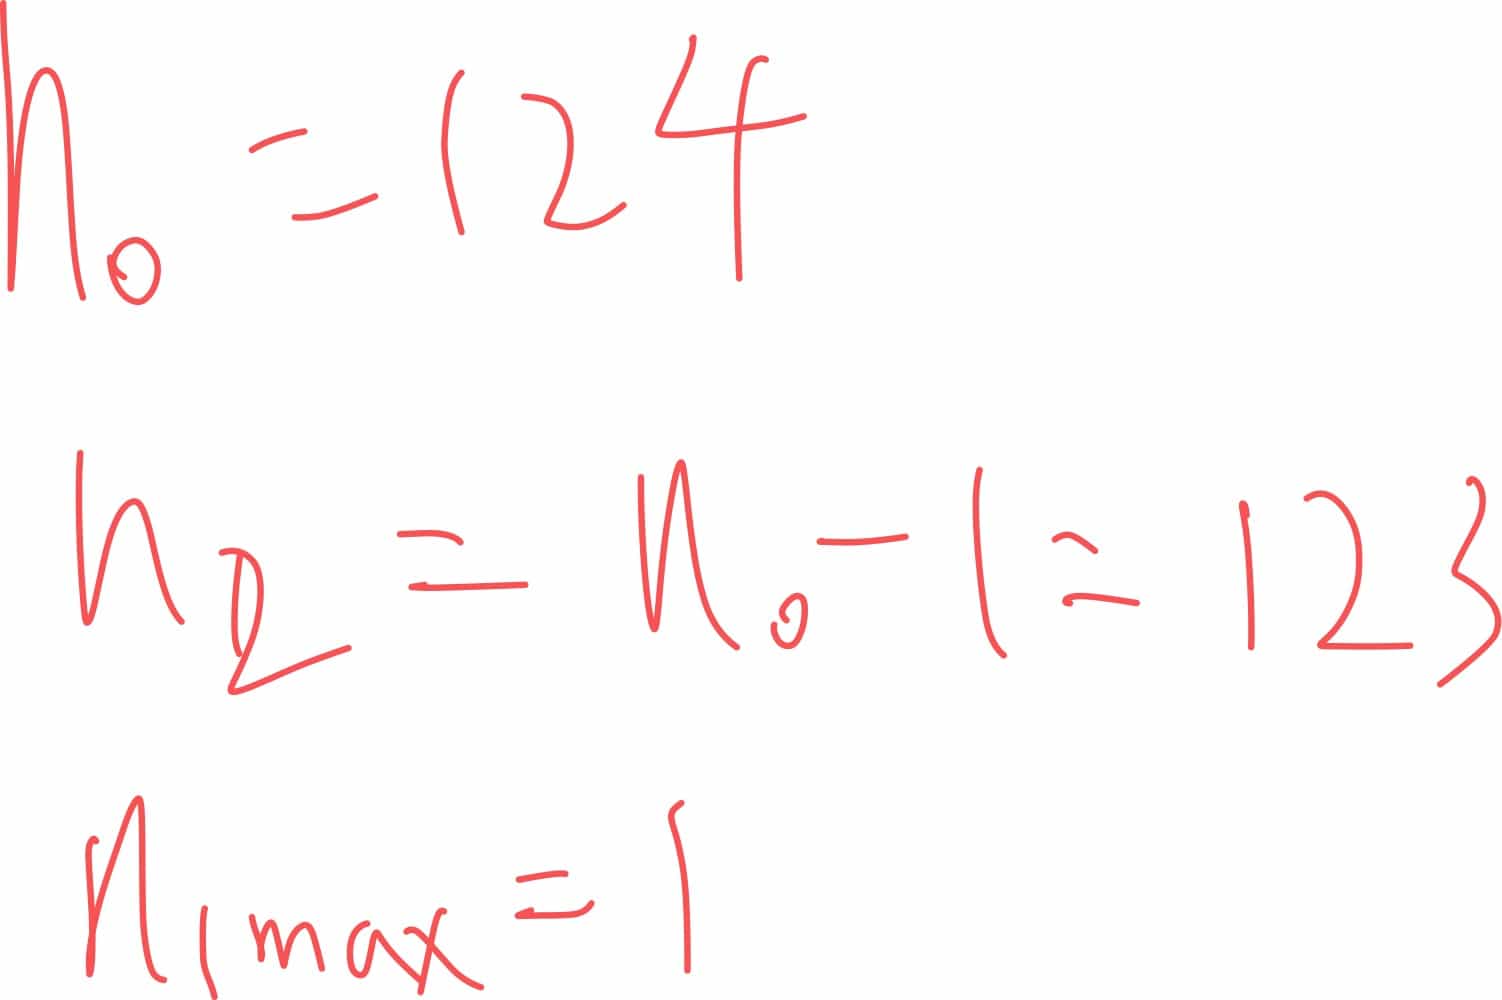 n₀ = 124
n₂ = n₀ - 1 = 123
n₁ max = 1